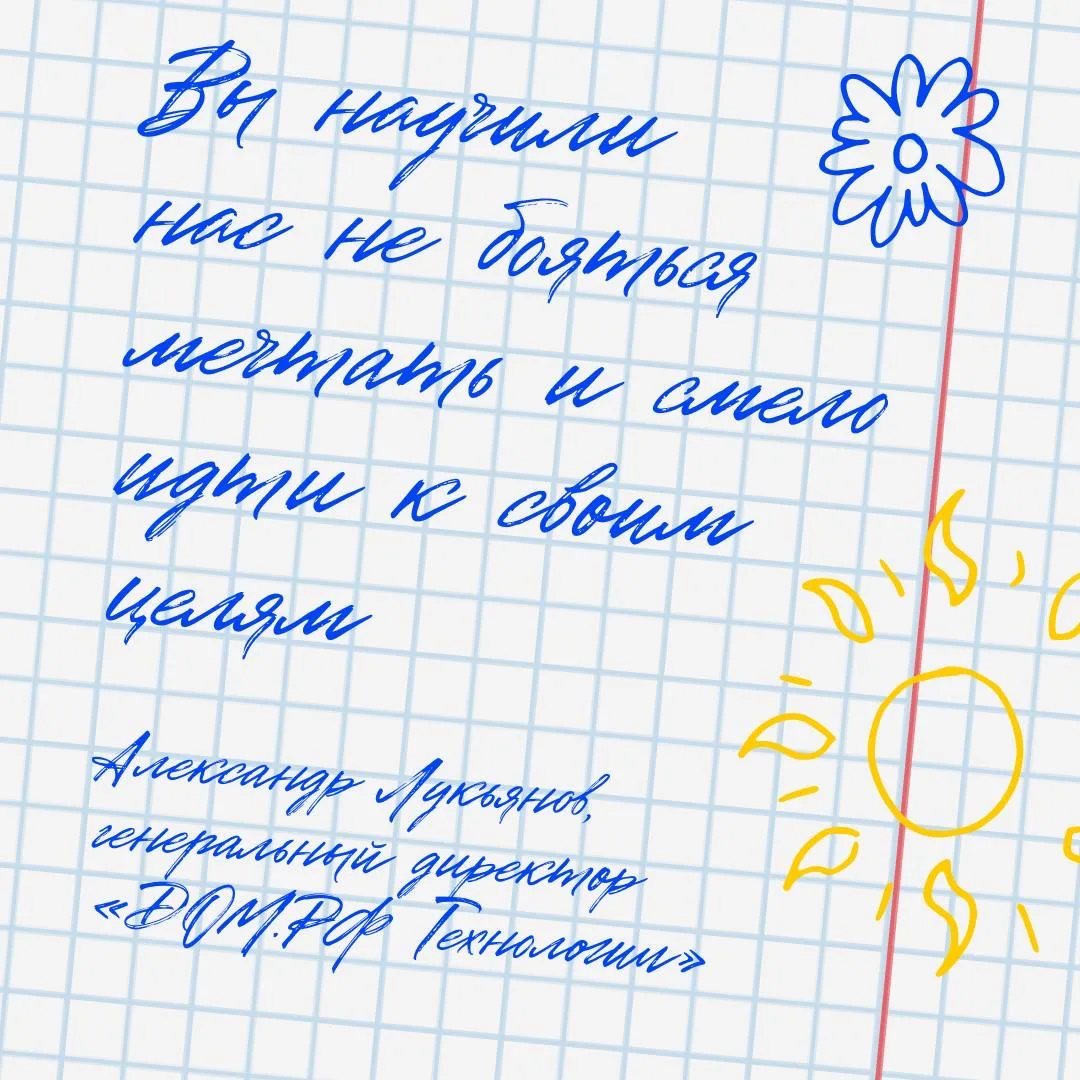 Вы научили
нас не бояться
мечтать и смело
идти к своим
целям
Александр Лукьянов,
генеральный директор
«ДОМ.РФ Технологии»